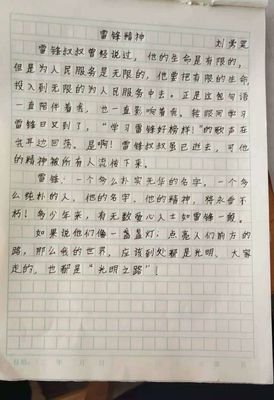 雷锋精神
雷锋叔叔曾经说过,他的生命是有限的,
但是为人民服务是无限的,他要把有限的生命,
投入到无限的为人民服务中去。正是这句句话
一直陪伴着我,也一直影响着我。转眼间学习
雷锋日又到了,“学习雷锋好榜样!”的歌声在
我耳边回荡。是啊!雷锋叔叔虽已逝去,可他
的精神被所有人流传下来。
雷锋:一个多么朴实无华的名字,一个多
么纯朴的人,他的名字、他的精神,将永垂不
朽!多少年来,有无数爱心人士如雷锋一般。
如果说他们像一盏盏灯:点亮人们前方的
路,那么我们的世界,应该到处都是光明。大家
走的,也都是“光明之路”!